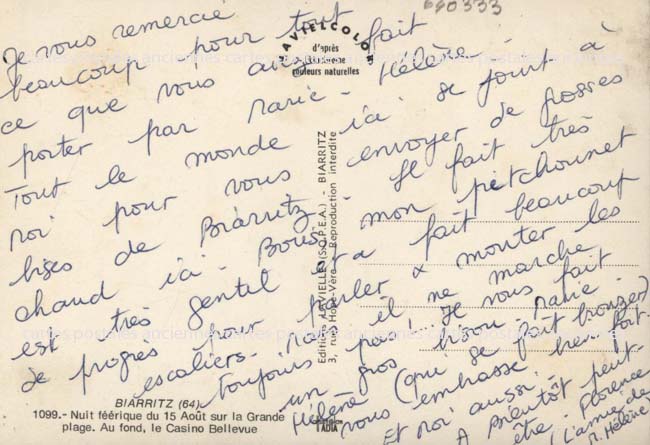 690333
Je vous remercie
beaucoup pour tout
ce que vous avez fait
porter par Marie-Hélène.
Tout le monde ici se joint à
moi pour vous envoyer de grosses
bises de Biarritz. Il fait très
chaud ici. Boris mon pitchounet
est très gentil et a fait beaucoup
de progrès pour parler & monter les
escaliers. Mais il ne marche
toujours pas! Je vous fait
un gros bisou. Marie-
Hélène (qui se fait bronzer)
vous embrasse bien fort.
Et moi aussi.
A Bientôt peut-
être. Florence
(l'amie de
M.Hélène)
LAVIELCOLOR
d'après
couleurs naturelles
Editions LAVIELLE (S.O.P.E.A.) - BIARRITZ
3, rue Reproduction interdite
BIARRITZ (64)
1099.- Nuit féérique du 15 Août sur la Grande
plage. Au fond, le Casino Bellevue